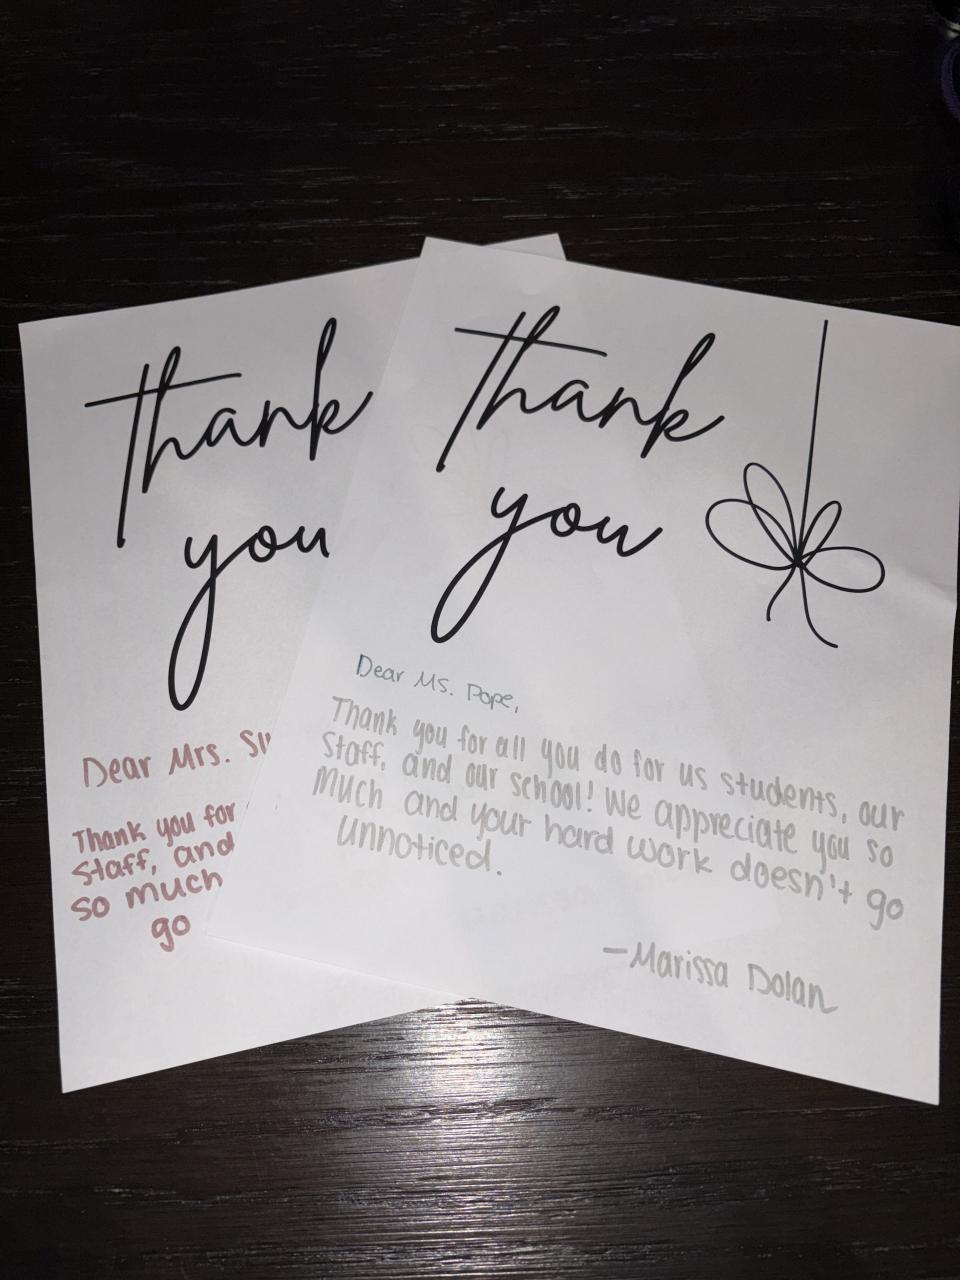 Thank
you
Dear Mrs.
Thank you for
staff, and
so much
go
Thank
you
Dear Ms. Pope,
Thank you for all you do for us students, our
staff, and our school! We appreciate you so
much and your hard work doesn't go
unnoticed.
—Marissa Dolan